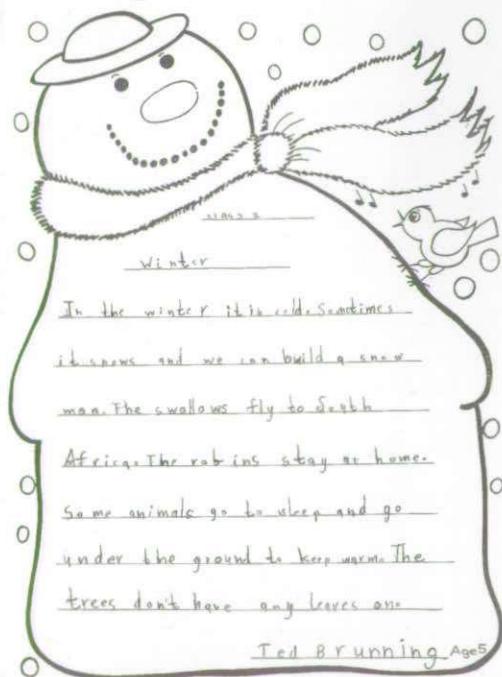 Winter
In the winter it is cold. Sometimes
it snows and we can build a snow
man. The swallows fly to South
Africa. The robins stay at home.
Some animals go to sleep and go
under the ground to keep warm. The
trees don't have any leaves on.
Ted Brunning Age 5